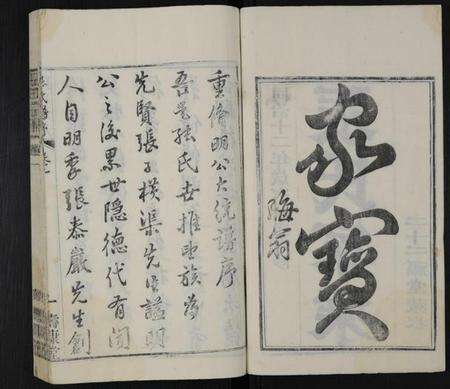 家寶
晦翁
重脩明公大統譜序
吾邑張氏世推望族為
先賢張子橫渠先生謚明
公之後累世隐德代有闻
人自明季張泰巖先生創